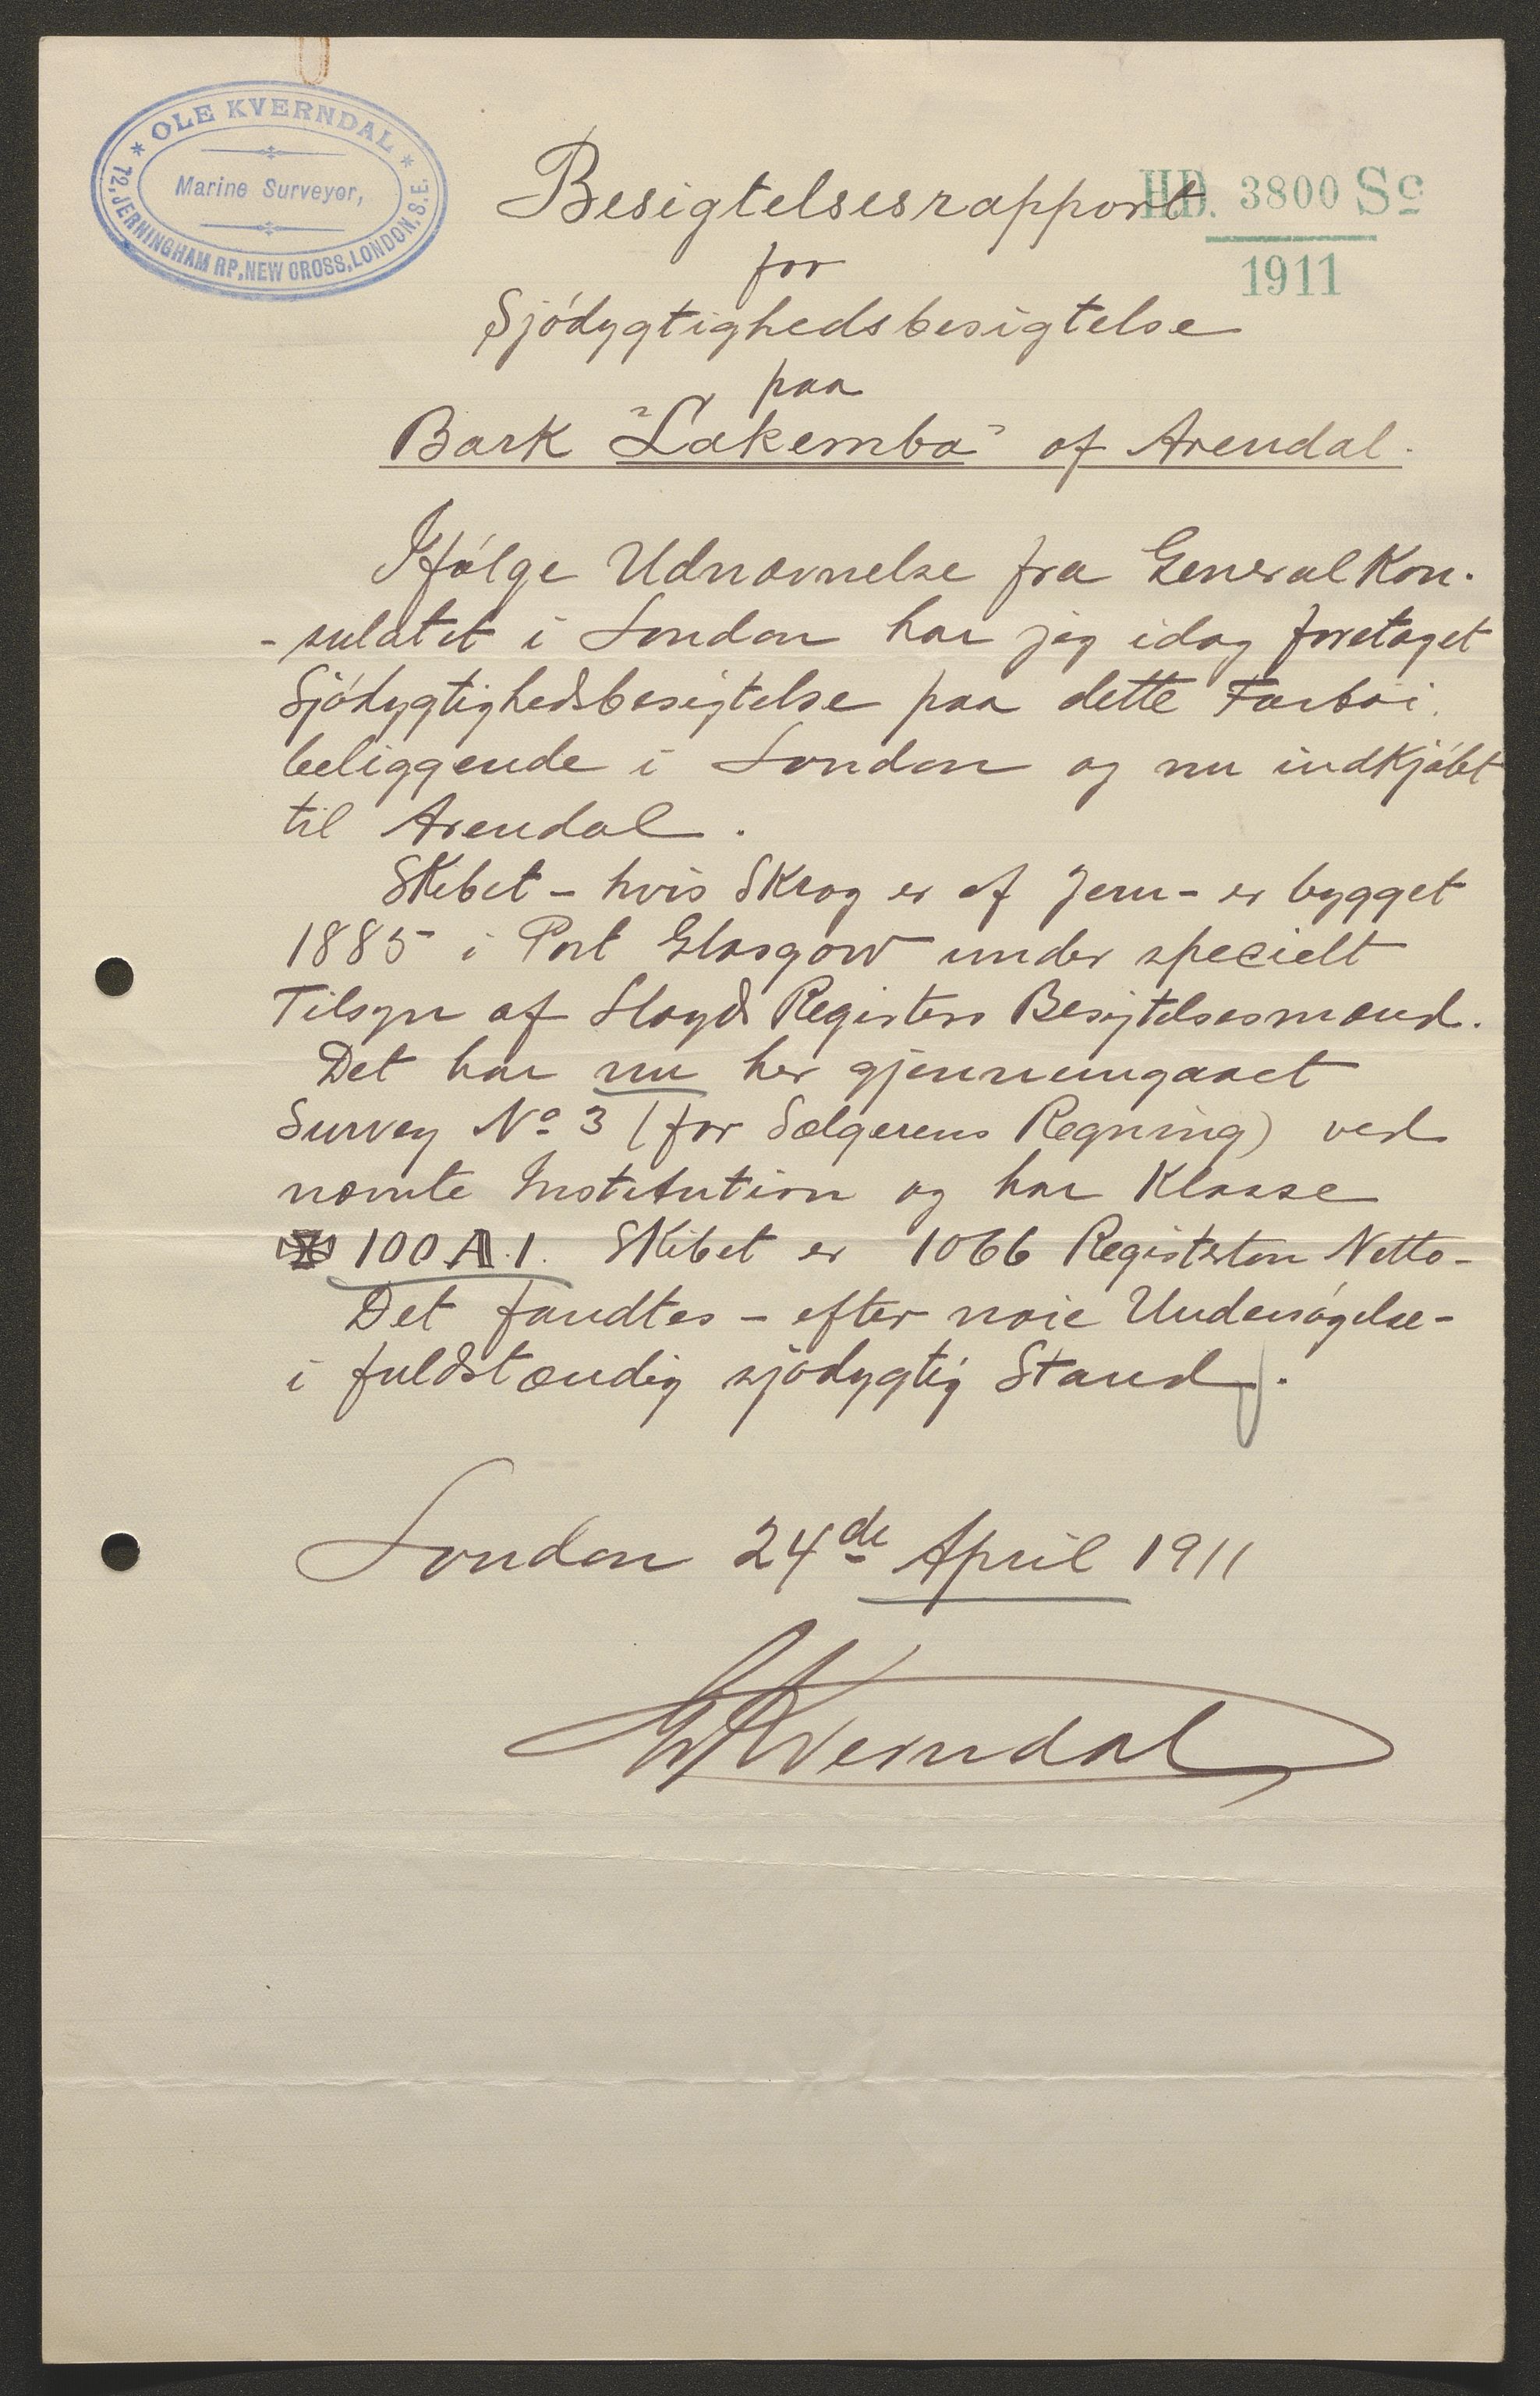 * OLE KVERNDAL *
Marine Surveyor,
72, JERNINGHAM RD, NEW CROSS, LONDON, S.E.
H.D. 3800 Sc
1911
Besigtelsesrapport
for
Sjødygtighedsbesigtelse
paa
Bark "Lakemba" af Arendal.
Ifølge Udnævnelse fra General Kon-
-sulatet i London har jeg idag foretaget
Sjødygtighedsbesigtelse paa dette Fartøi,
beliggende i London og nu indkjøbt
til Arendal.
Skibet - hvis Skrog er af Jern - er bygget
1885 i Port Glasgow under specielt
Tilsyn af Lloyds Registers Besigtelsesmænd.
Det har nu her gjennemgaaet
Survey No 3 (for Sælgerens Regning) ved
nævnte Institution og har Klasse
✠ 100 A.1. Skibet er 1066 Registerton Netto-
Det fandtes - efter nøie Undersøgelse -
i fuldstændig sjødygtig Stand.
London 24de April 1911
Kverndal